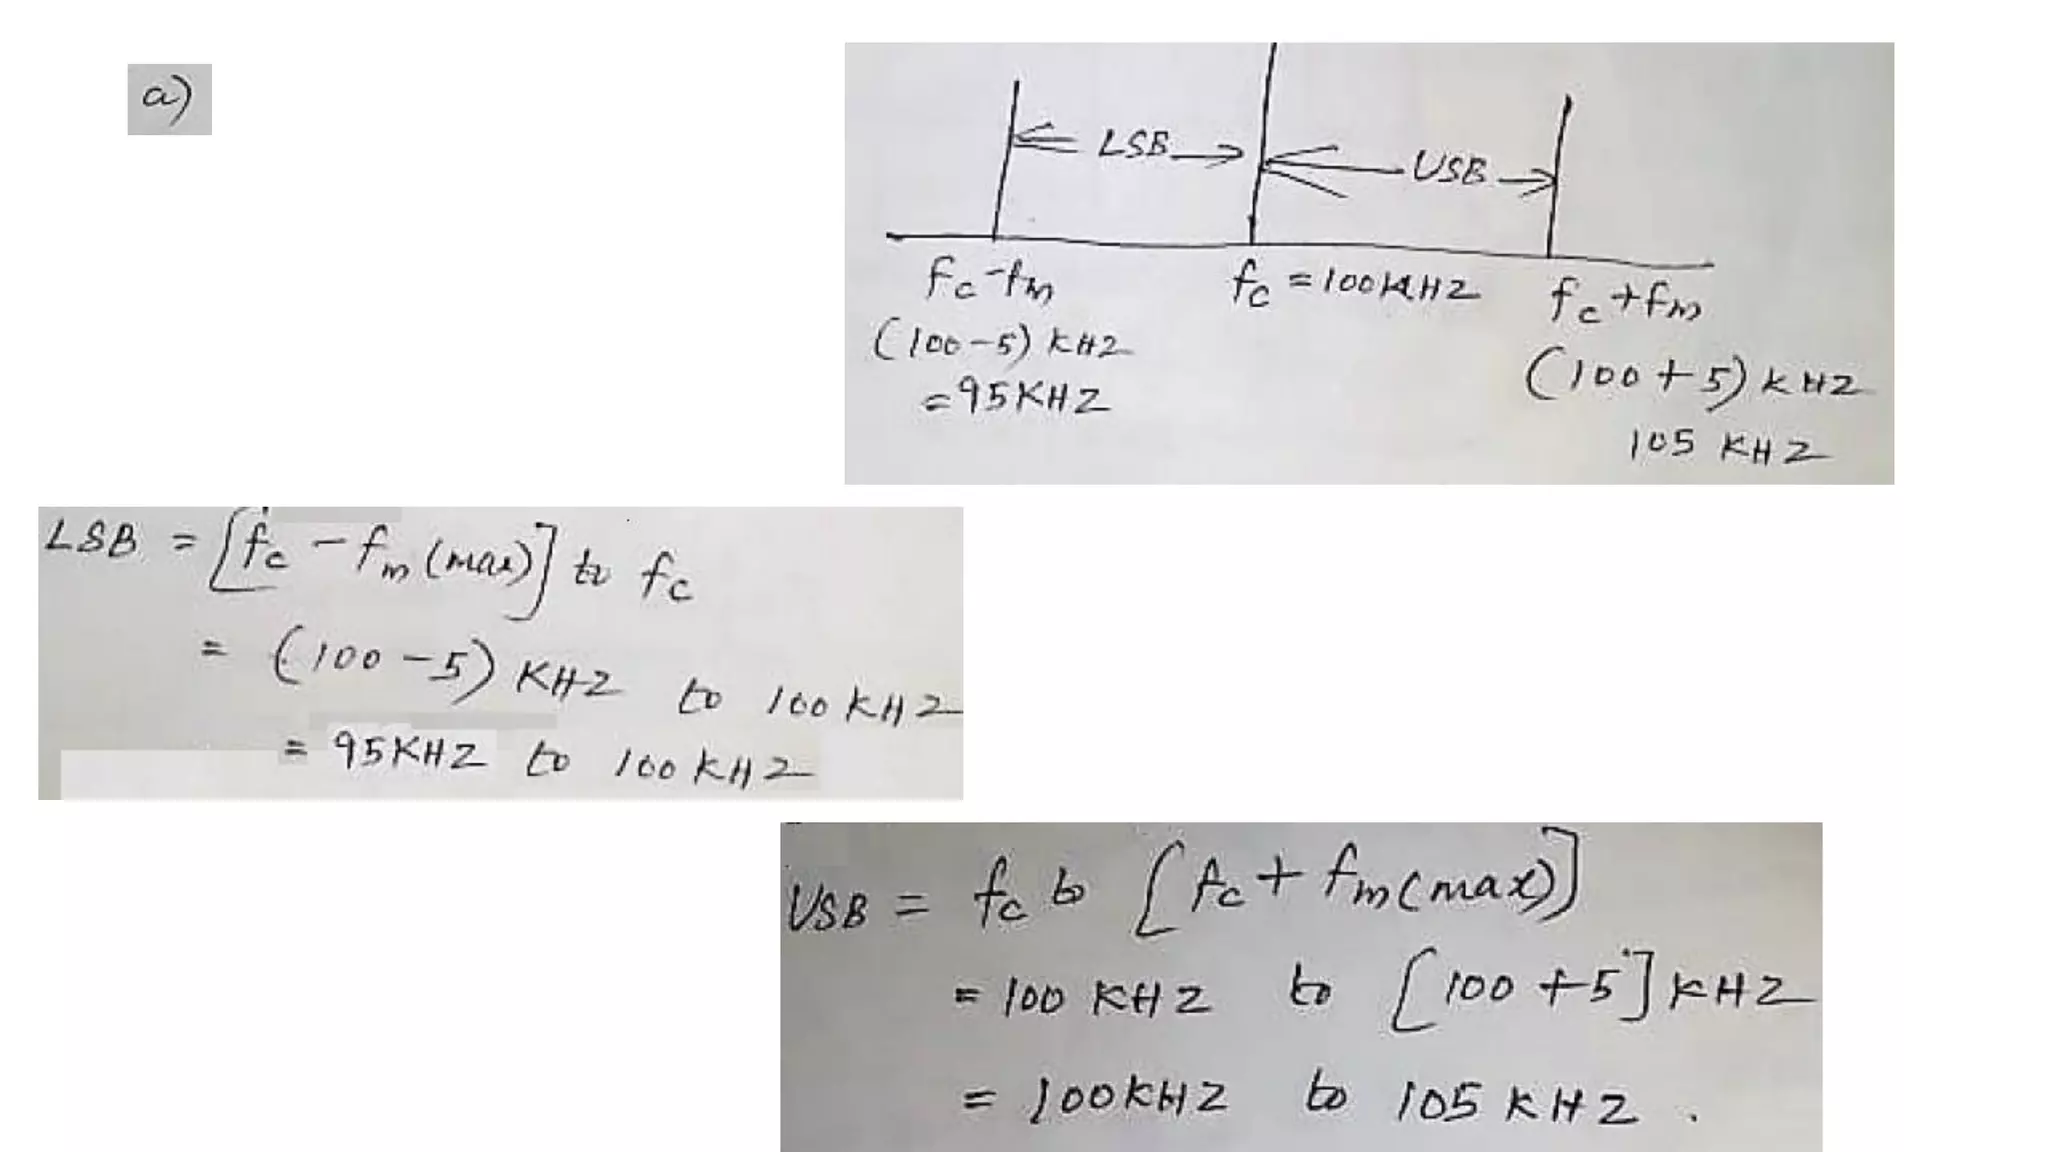 a)
LSB
USB
fc - fm
fc = 100KHZ
fc + fm
(100-5) KHZ
= 95KHZ
(100 + 5) KHZ
105 KHZ
LSB = [fc - fm (max)] to fc
= (100 - 5) KHZ to 100 KHZ
= 95KHZ to 100 KHZ
USB = fc to [fc + fm (max)]
= 100 KHZ to [100 + 5] KHZ
= 100KHZ to 105 KHZ .